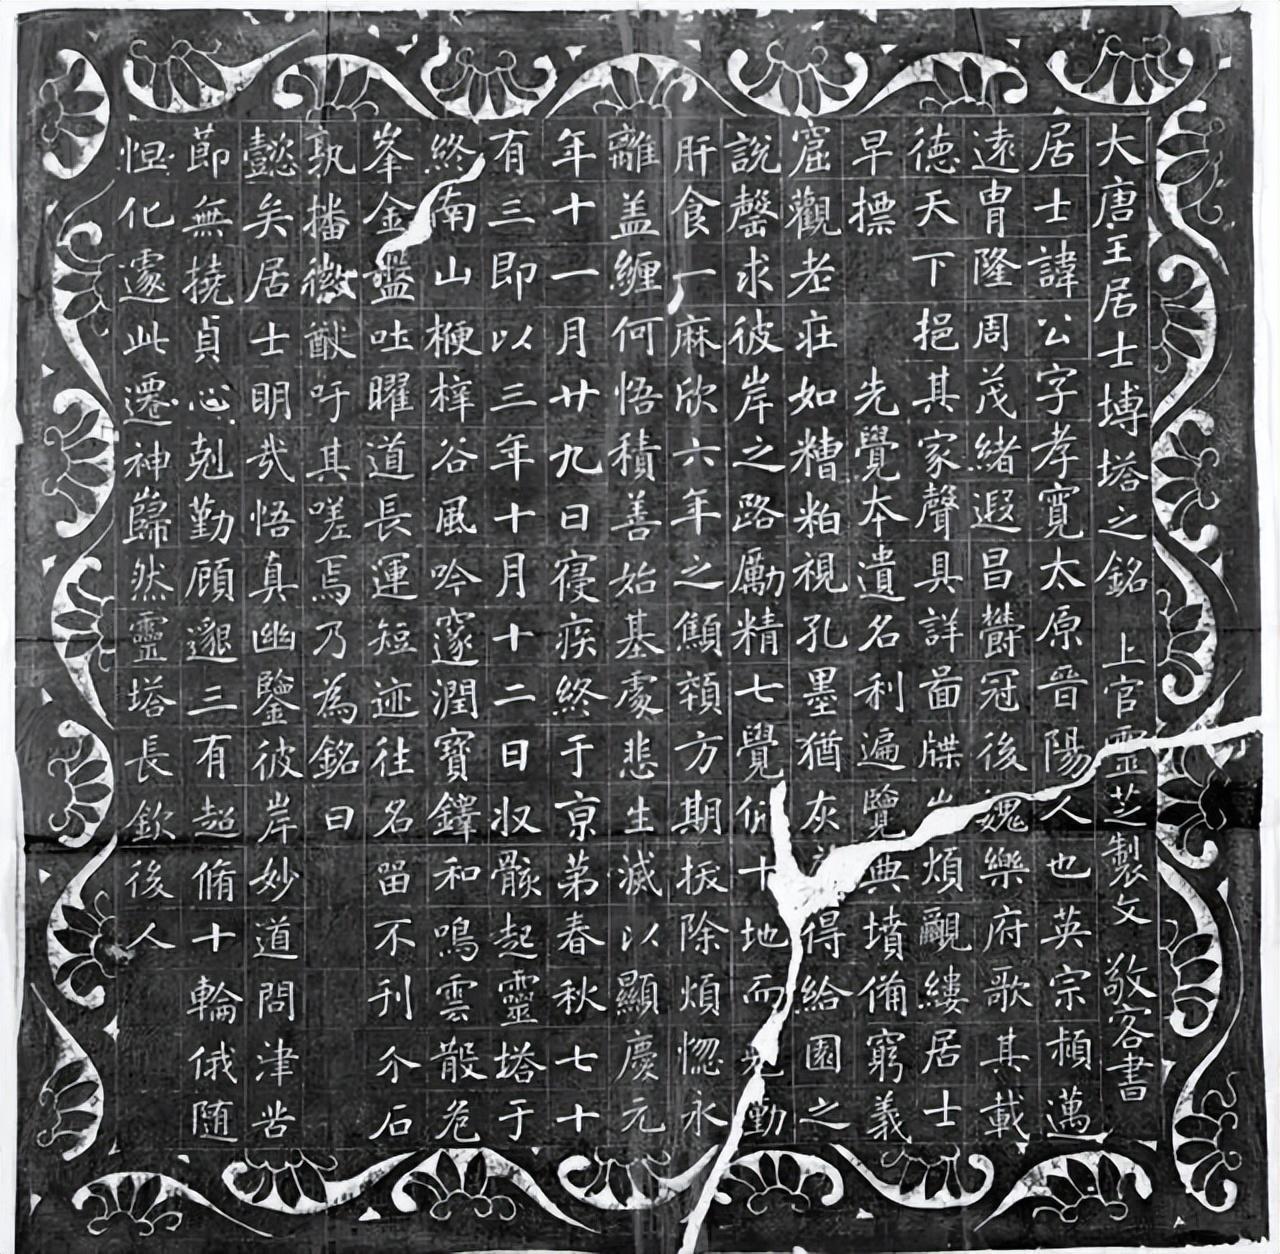 大唐王居士塼塔之銘 上官靈芝製文 敬客書
居士諱公字孝寬太原晉陽人也英宗穎邁
遠冑隆周茂緒遐昌欝冠後魏樂府歌其載
德天下挹其家聲具詳啚牒煩覼縷居士
早摽 先覺本遺名利遍覽典墳備窮義
窟觀老莊如糟粕視孔墨猶灰得給園之
說罄求彼岸之路勵精七覺仰十地而克勤
肝食一麻欣六年之顦顇方期拔除煩惚永
離盖纏何悟積善始基處悲生滅以顯慶元
年十一月廿九日寑疾終于京第春秋七十
有三即以三年十月十二日収骸起靈塔于
終南山楩梓谷風吟邃潤寶鐸和鳴雲散危
峯金盤吐曜道長運短迹往名留不刊介石
孰播徽猷吁其嗟焉乃為銘曰
懿矣居士明哉悟真幽鑒彼岸妙道問津苦
莭無撓貞心剋勤顧邈三有超脩十輪俄随
怛化遽此遷神巋然靈塔長欽後人